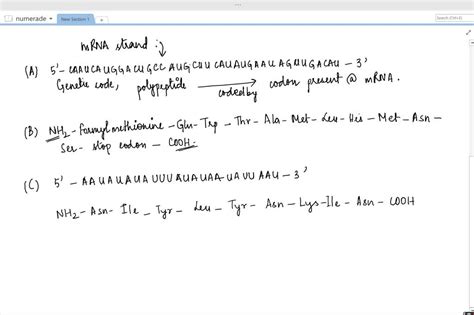 numerade
New Section 1
mRNA strand :
(A) 5'- CAAUCAUGGACUGCC AUGCUU CAUAUGAAU AGUUGACAU - 3'
Genetic code, polypeptide → coded by codon present @ mRNA.
(B) NH2 - Formylmethionine - Gln - Trp - Thr - Ala - Met - Leu - His - Met - Asn -
Ser - stop codon - COOH.
(C) 5' - AAUAUAUA UUU AUAUAA UAUU AAU - 3'
NH2 - Asn - Ile - Tyr - Leu - Tyr - Asn - Lys - Ile - Asn - COOH